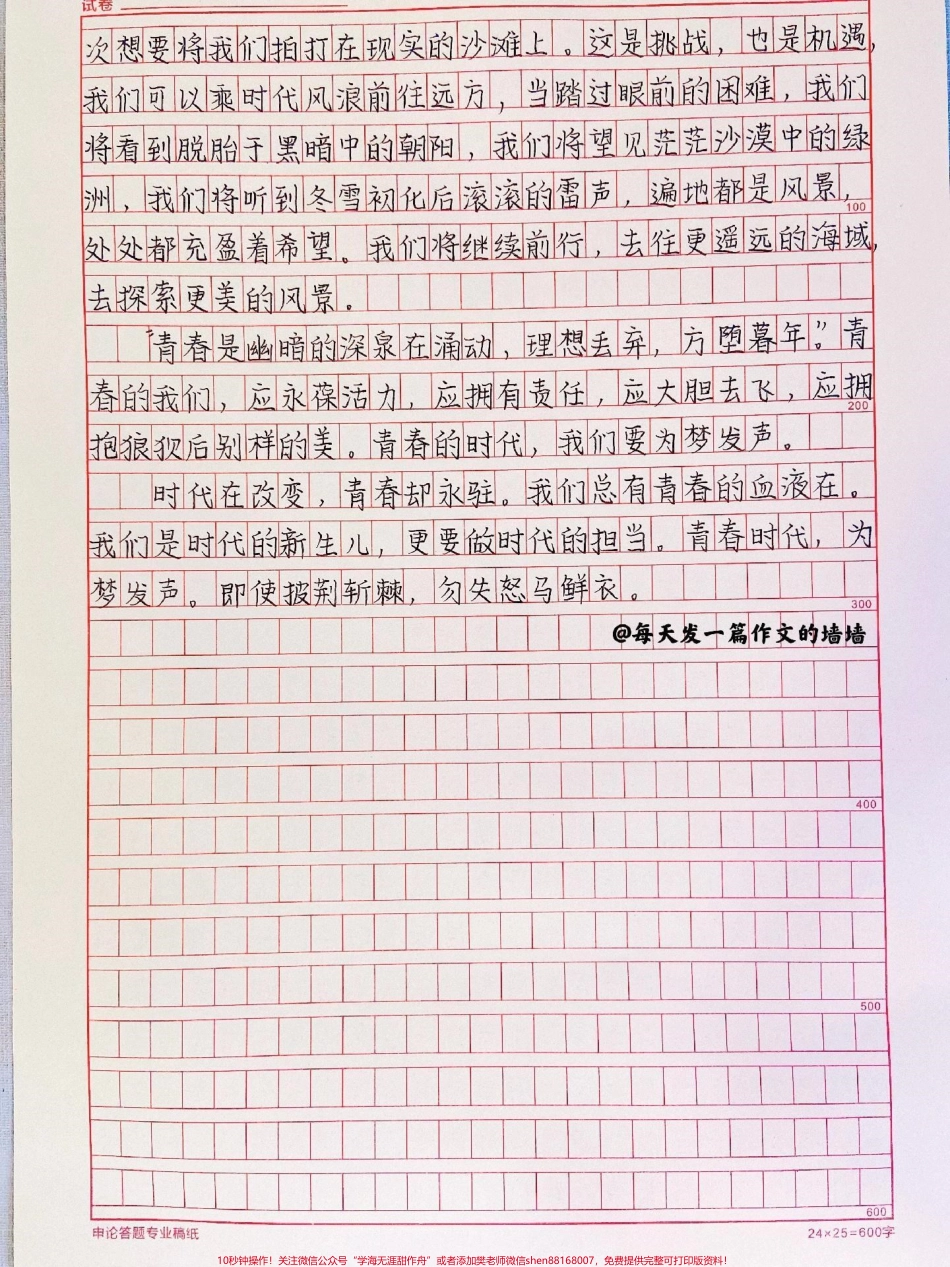 试卷
次想要将我们拍打在现实的沙滩上。这是挑战，也是机遇，
我们可以乘时代风浪前往远方，当踏过眼前的困难，我们
将看到脱胎于黑暗中的朝阳，我们将望见茫茫沙漠中的绿
洲，我们将听到冬雪初化后滚滚的雷声，遍地都是风景，
100
处处都充盈着希望。我们将继续前行，去往更遥远的海域，
去探索更美的风景。
“青春是幽暗的深泉在涌动，理想丢弃，方堕暮年。”青
春的我们，应永葆活力，应拥有责任，应大胆去飞，应拥
200
抱狼狈后别样的美。青春的时代，我们要为梦发声。
时代在改变，青春却永驻。我们总有青春的血液在。
我们是时代的新生儿，更要做时代的担当。青春时代，为
梦发声。即使披荆斩棘，勿失怒马鲜衣。
300
@每天发一篇作文的墙墙
400
500
600
申论答题专业稿纸
24×25=600字
10秒钟操作！关注微信公众号“学海无涯甜作舟”或者添加樊老师微信shen88168007，免费提供完整可打印版资料！